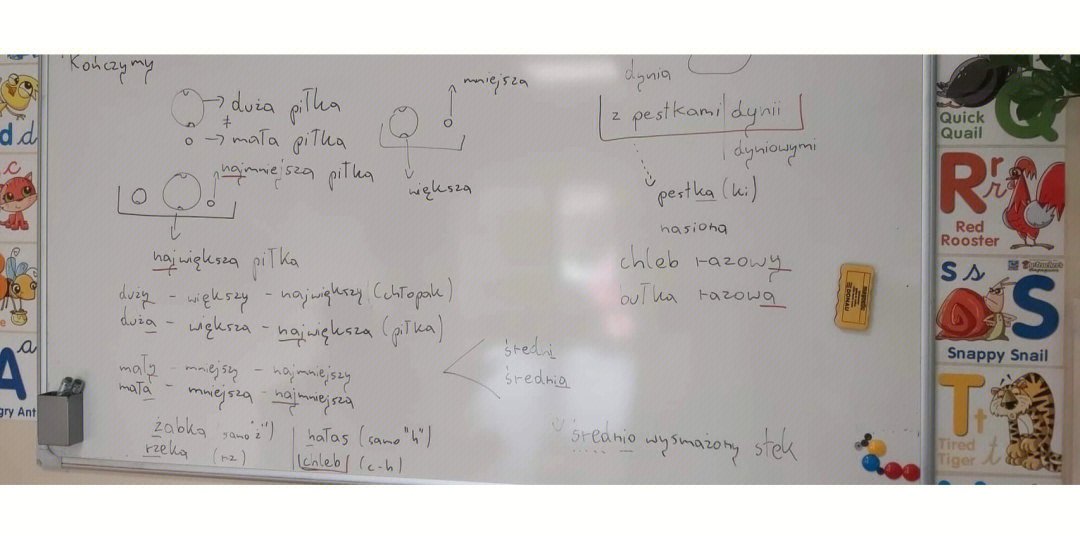 Kończymy
duża piłka
≠
mała piłka
najmniejsza piłka
największa piłka
mniejsza
większa
duży - większy - największy (chłopak)
duża - większa - największa (piłka)
mały - mniejszy - najmniejszy
mała - mniejsza - najmniejsza
średni
średnia
żabka (samo "ż")
rzeka (rz)
hałas (samo "h")
chleb (c-h)
dynia
z pestkami dynii
dyniowymi
pestka (ki)
nasiona
chleb razowy
bułka razowa
średnio wysmażony stek
d d
c
e
a
A
gry Ant
Quick
Quail
Q
R r
r
Red
Rooster
S s
S
Snappy Snail
T t
t
Tired
Tiger
DONAU